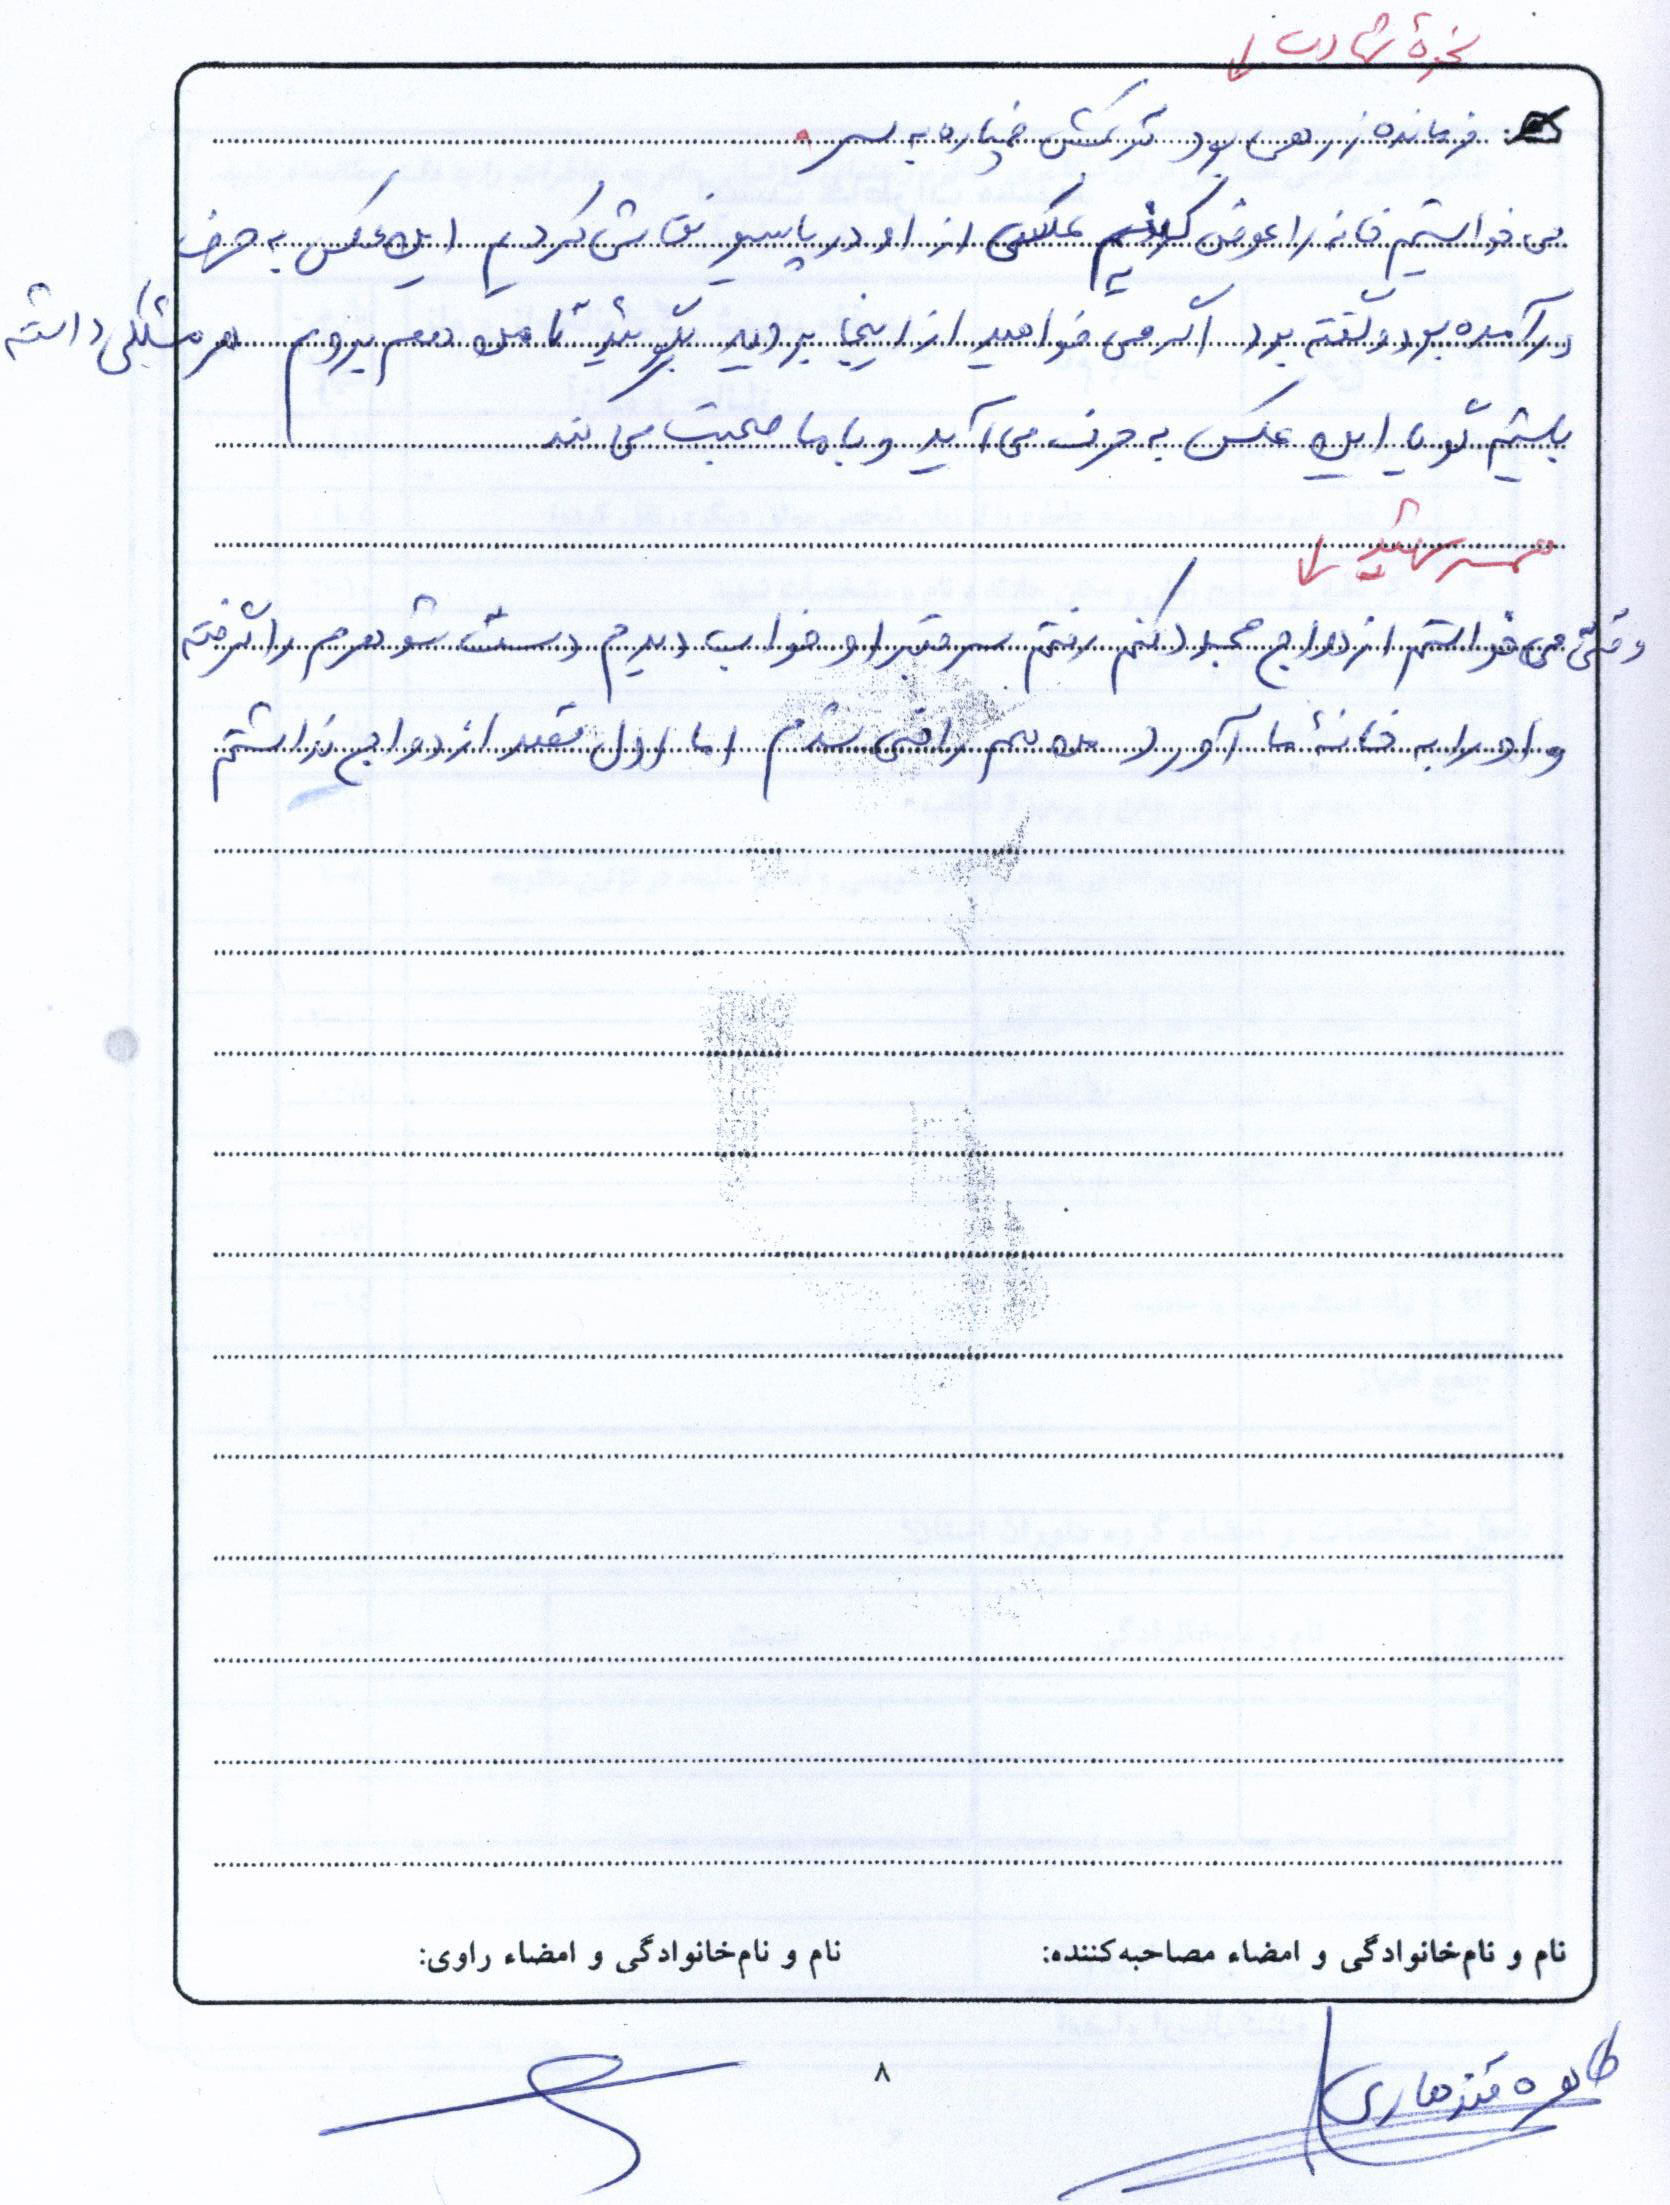 نحوهٔ شهادت
فرمانده زرهی بود ترکش خمپاره به سر
می خواستیم خانه را عوض کنیم عکسی از او در پاسیو نقاش کردیم این عکس به حرف
در آمده بود و گفته بود اگر می خواهید از اینجا بروید بگوئید تا من هم بروم هر مشکلی داشته
باشیم گویا این عکس به حرف می آید و با ما صحبت می کند
همسر شهید
وقتی می خواستم ازدواج مجدد کنم رفتم سر قبر او خواب دیدم دست شوهرم را گرفته
و او را به خانهٔ ما آورد من هم راضی شدم اما اول قصد ازدواج نداشتم
نام و نام‌خانوادگی و امضاء مصاحبه‌کننده:
نام و نام‌خانوادگی و امضاء راوی:
طاهره قندهاری
۸